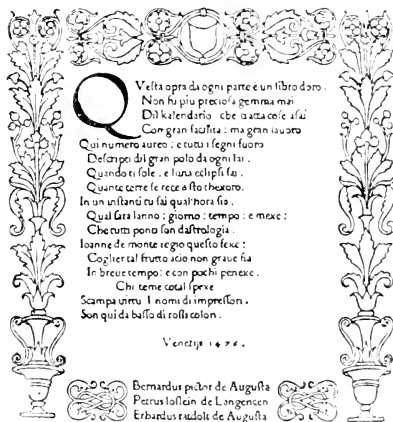 QVesta opra da ogni parte è un libro doro.
Non fu piu preciosa gemma mai
Dil kalendario: che tratta cose asai
Con gran facilita: ma gran lauoro
Qui numero aureo: e tutti i segni fuoro
Descripti dil gran polo da ogni lai.
Quando il sole, e luna eclipsi fai.
Quante terre se rece a sto thexoro.
In un instanti tu sai qual hora sia.
Qual sara lanno: giorno: tempo: e mexe:
Che tutti ponti son dastrologia.
Ioanne de monte regio questo fexe:
Coglier tal frutto acio non graue sia
In breue tempo: e con pochi penexe.
Chi teme cotal spexe
Scampa uirtu. I nomi di impressori.
Son qui da basso di rossi colori.
Venetijs 1476.
Bernardus pictor de Augusta
Petrus loslein de Langencen
Erhardus ratdolt de Augusta